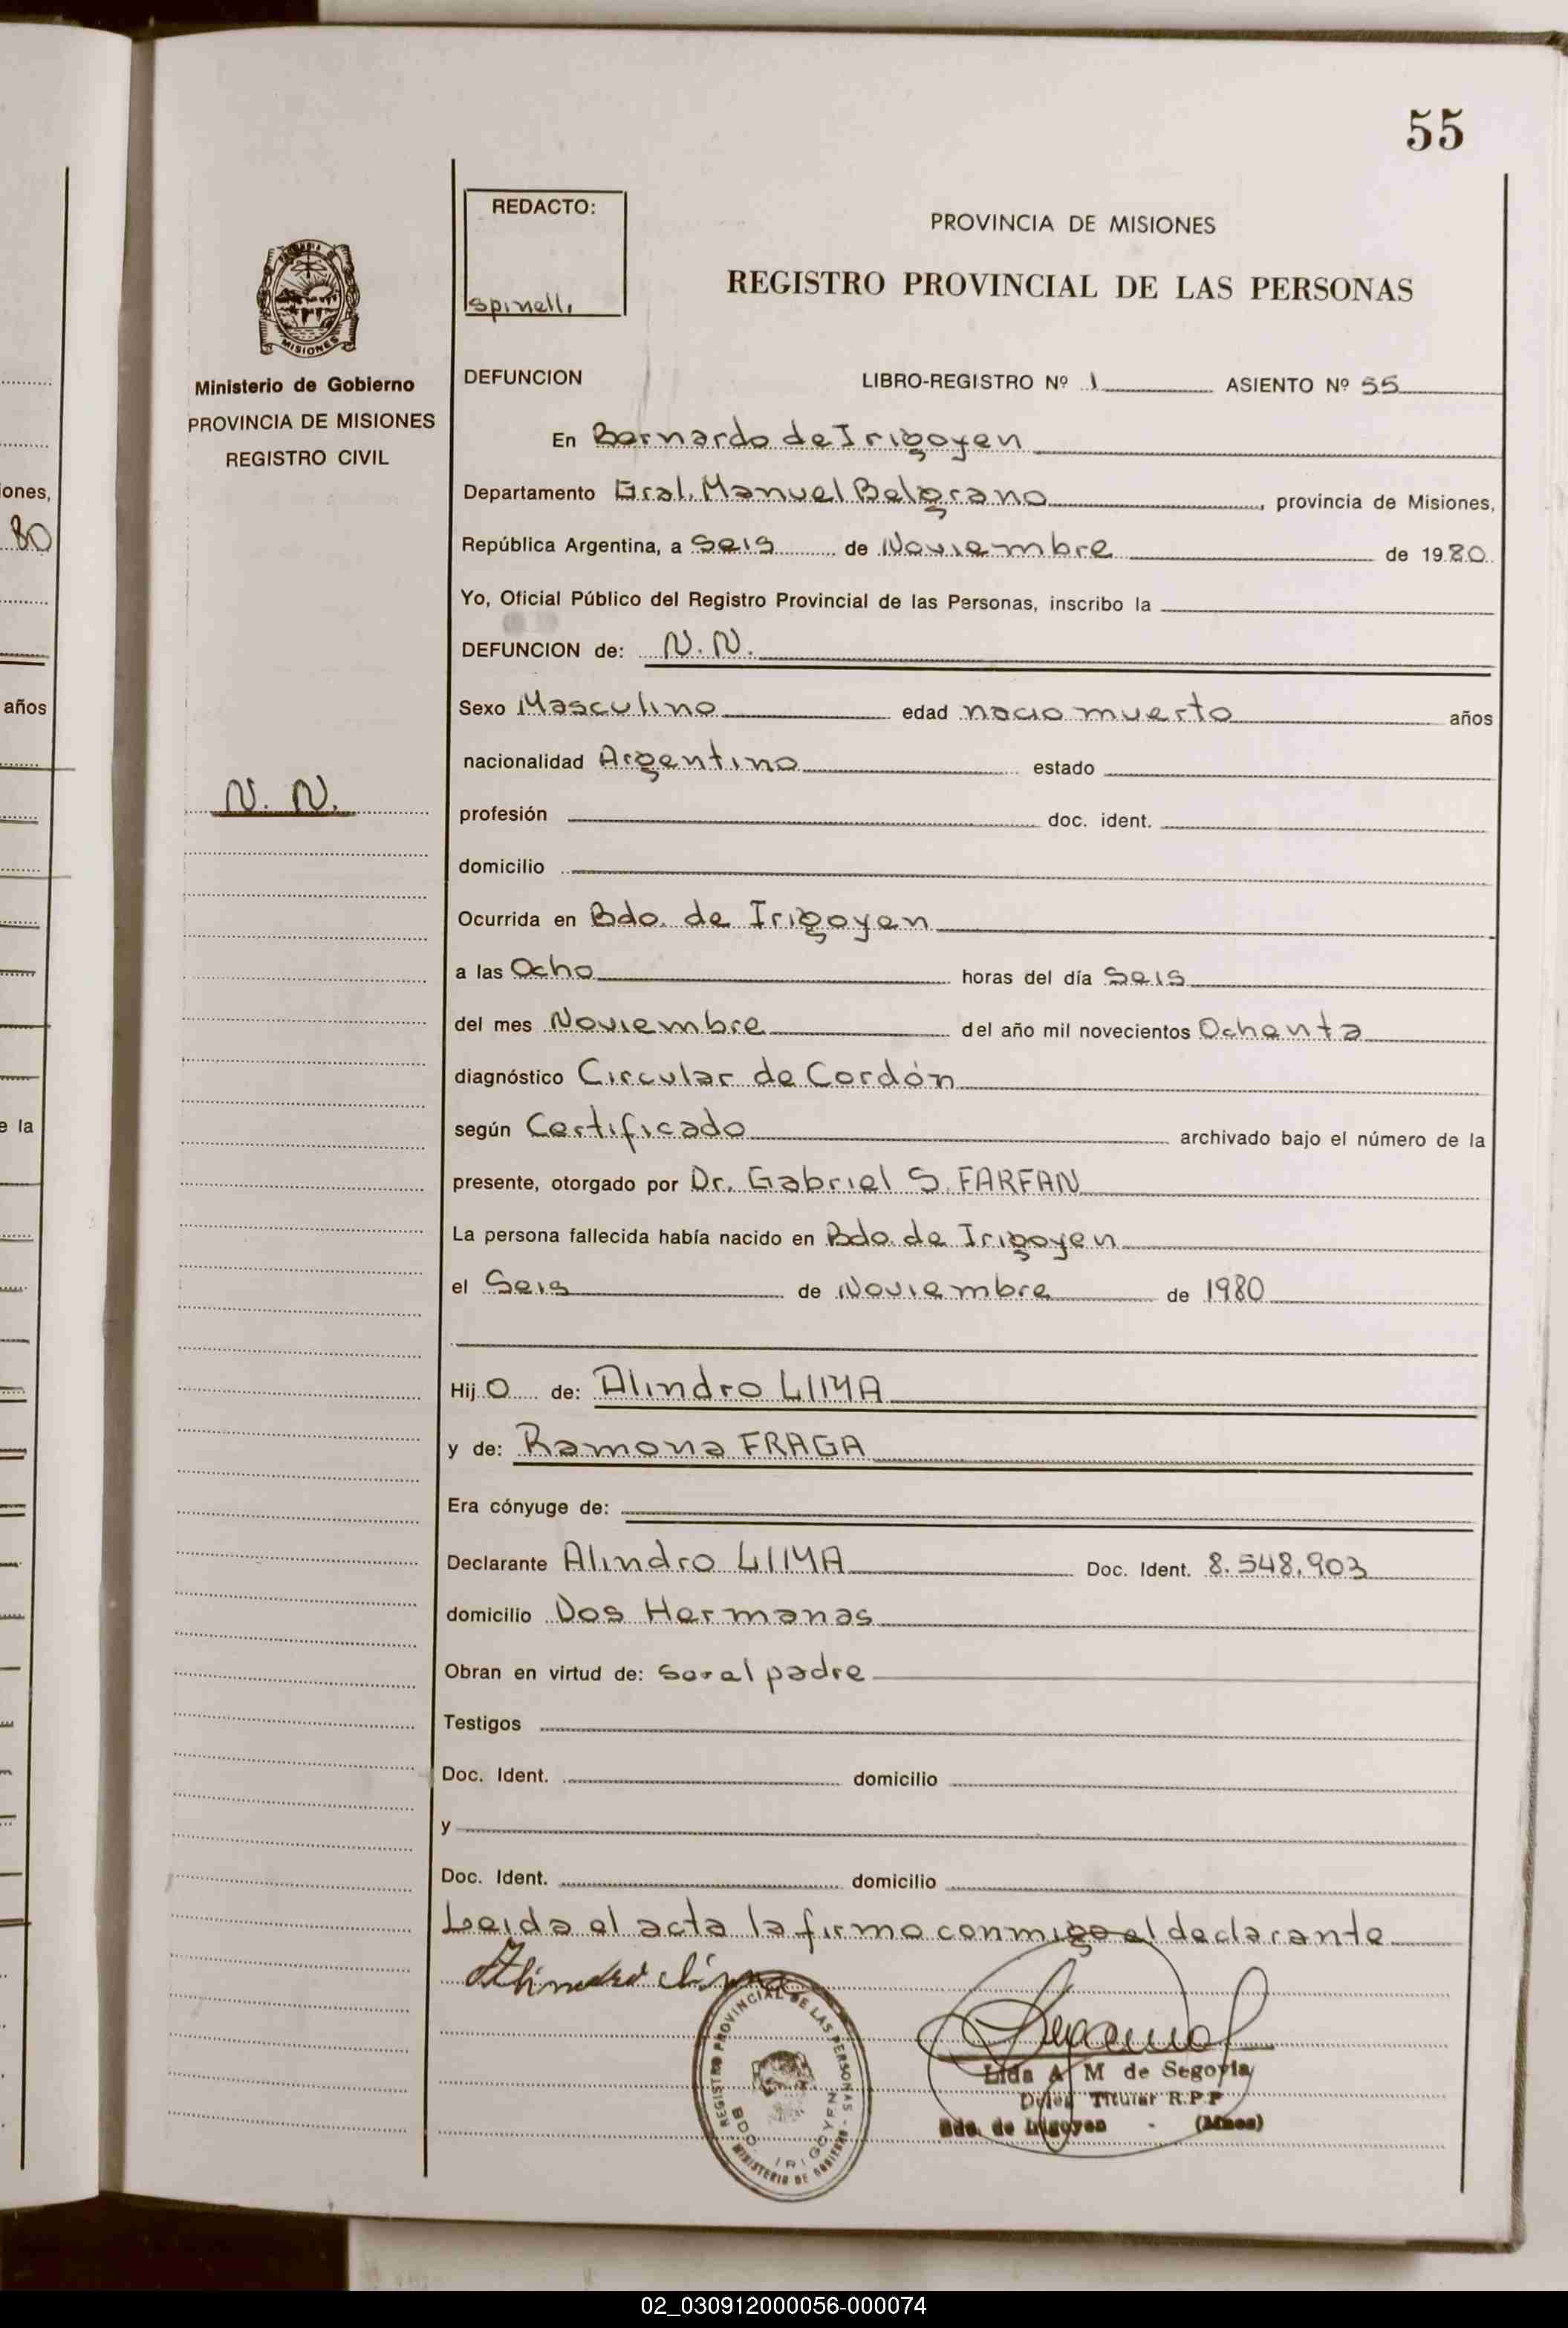 55
REDACTO:
spinelli
PROVINCIA DE MISIONES
REGISTRO PROVINCIAL DE LAS PERSONAS
MISIONES
Ministerio de Gobierno
PROVINCIA DE MISIONES
REGISTRO CIVIL
DEFUNCION LIBRO-REGISTRO Nº 1 ASIENTO Nº 55
En Bernardo de Irigoyen
Departamento Gral. Manuel Belgrano, provincia de Misiones,
República Argentina, a Seis de Noviembre de 1980
Yo, Oficial Público del Registro Provincial de las Personas, inscribo la
DEFUNCION de: N.N.
Sexo Masculino edad nacio muerto años
nacionalidad Argentino estado
N. N.
profesión doc. ident.
domicilio
Ocurrida en Bdo. de Irigoyen
a las Ocho horas del día Seis
del mes Noviembre del año mil novecientos Ochenta
diagnóstico Circular de Cordón
según Certificado archivado bajo el número de la
presente, otorgado por Dr. Gabriel S. FARFAN
La persona fallecida había nacido en Bdo. de Irigoyen
el Seis de Noviembre de 1980
Hij O de: Alindro LIMA
y de: Ramona FRAGA
Era cónyuge de:
Declarante Alindro LIMA Doc. Ident. 8.548.903
domicilio Dos Hermanas
Obran en virtud de: Ser el padre
Testigos
Doc. Ident. domicilio
y
Doc. Ident. domicilio
Leida el acta la firma conmigo el declarante
REGISTRO PROVINCIAL DE LAS PERSONAS - MINISTERIO DE GOBIERNO
BDO. IRIGOYEN
Lida A M de Segovia
Deleg Titular R.P.P
Bdo. de Irigoyen - (Mnes)
ones,
80
años
e la
02_030912000056-000074